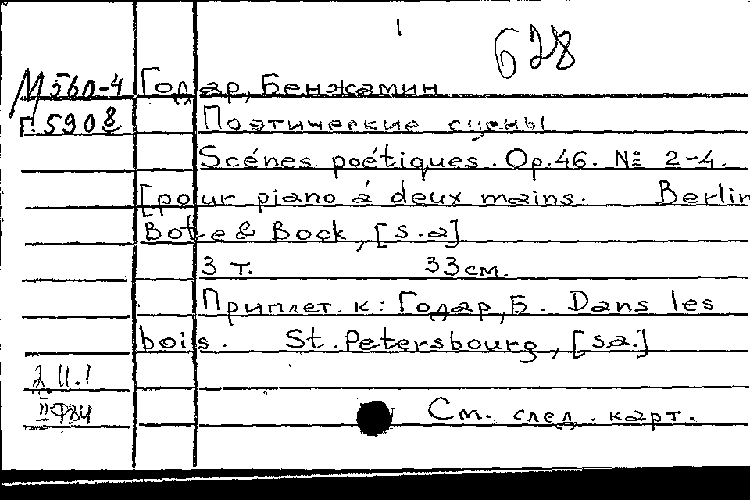 628
М560-4 Годар, Бенжамин
Г.5908 Поэтические сцены
Scénes poétiques. Op.46. № 2-4.
[pour piano à deux mains. Berlin
Bote & Bock, [s.a]
3 т. 33см.
Приплет. к: Годар, Б. Dans les
bois. St. Petersbourg, [s.a.]
2.II.1
IIФ84
См. след. карт.